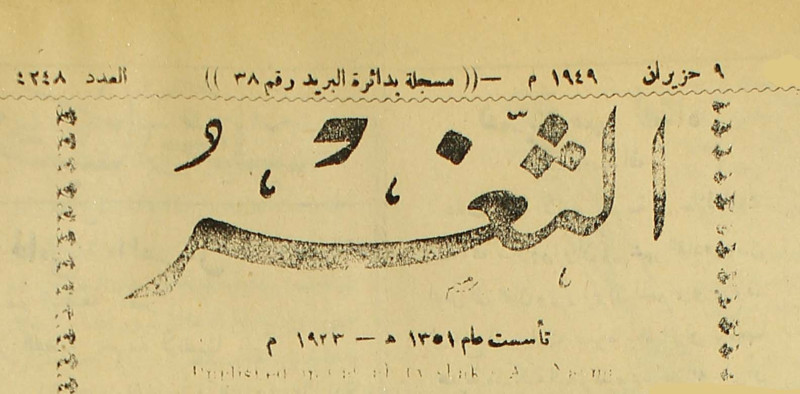 ٩ حزيران ١٩٤٩ م —(( مسجلة بدائرة البريد رقم ٣٨ )) العدد ٤٢٤٨
الثغر
تأسست عام ١٣٥١ ه — ١٩٢٣ م